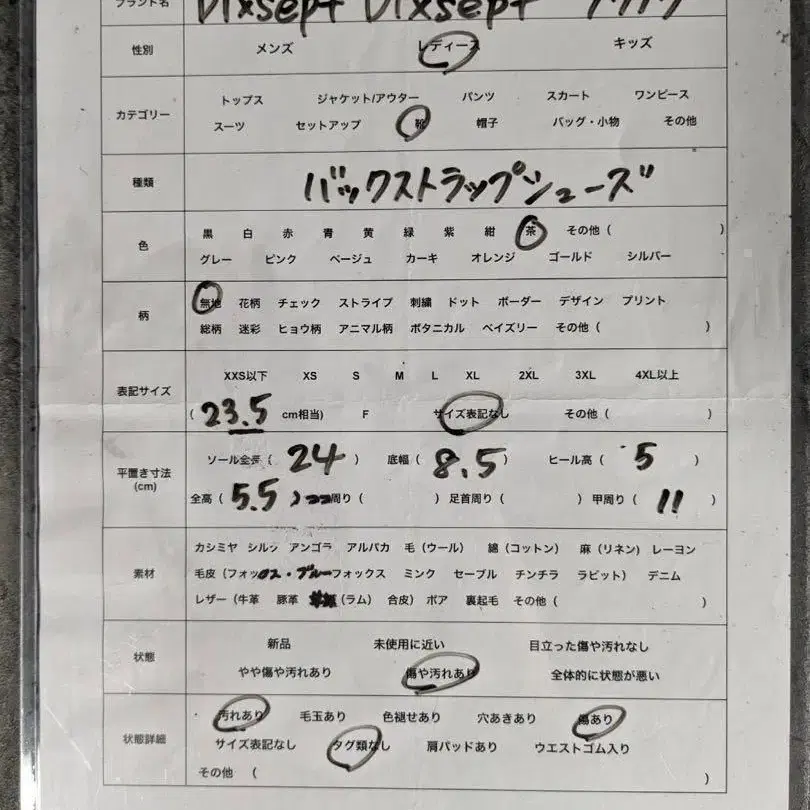 ブランド名 Dixsept Dixsept
性別 メンズ レディース キッズ
カテゴリー トップス ジャケット/アウター パンツ スカート ワンピース
スーツ セットアップ 靴 帽子 バッグ・小物 その他
種類 バックストラップシューズ
色 黒 白 赤 青 黄 緑 紫 紺 茶 その他 ( )
グレー ピンク ベージュ カーキ オレンジ ゴールド シルバー
柄 無地 花柄 チェック ストライプ 刺繍 ドット ボーダー デザイン プリント
総柄 迷彩 ヒョウ柄 アニマル柄 ボタニカル ペイズリー その他 ( )
表記サイズ XXS以下 XS S M L XL 2XL 3XL 4XL以上
( 23.5 cm相当) F サイズ表記なし その他 ( )
平置き寸法 (cm) ソール全長 ( 24 ) 底幅 ( 8.5 ) ヒール高 ( 5 )
全高 ( 5.5 ) 周り ( ) 足首周り ( ) 甲周り ( 11 )
素材 カシミヤ シルク アンゴラ アルパカ 毛 (ウール) 綿 (コットン) 麻 (リネン) レーヨン
毛皮 (フォックス・ブルーフォックス ミンク セーブル チンチラ ラビット) デニム
レザー (牛革 豚革 (ラム) 合皮) ボア 裏起毛 その他 ( )
状態 新品 未使用に近い 目立った傷や汚れなし
やや傷や汚れあり 傷や汚れあり 全体的に状態が悪い
状態詳細 汚れあり 毛玉あり 色褪せあり 穴あきあり 傷あり
サイズ表記なし タグ類なし 肩パッドあり ウエストゴム入り
その他 ( )